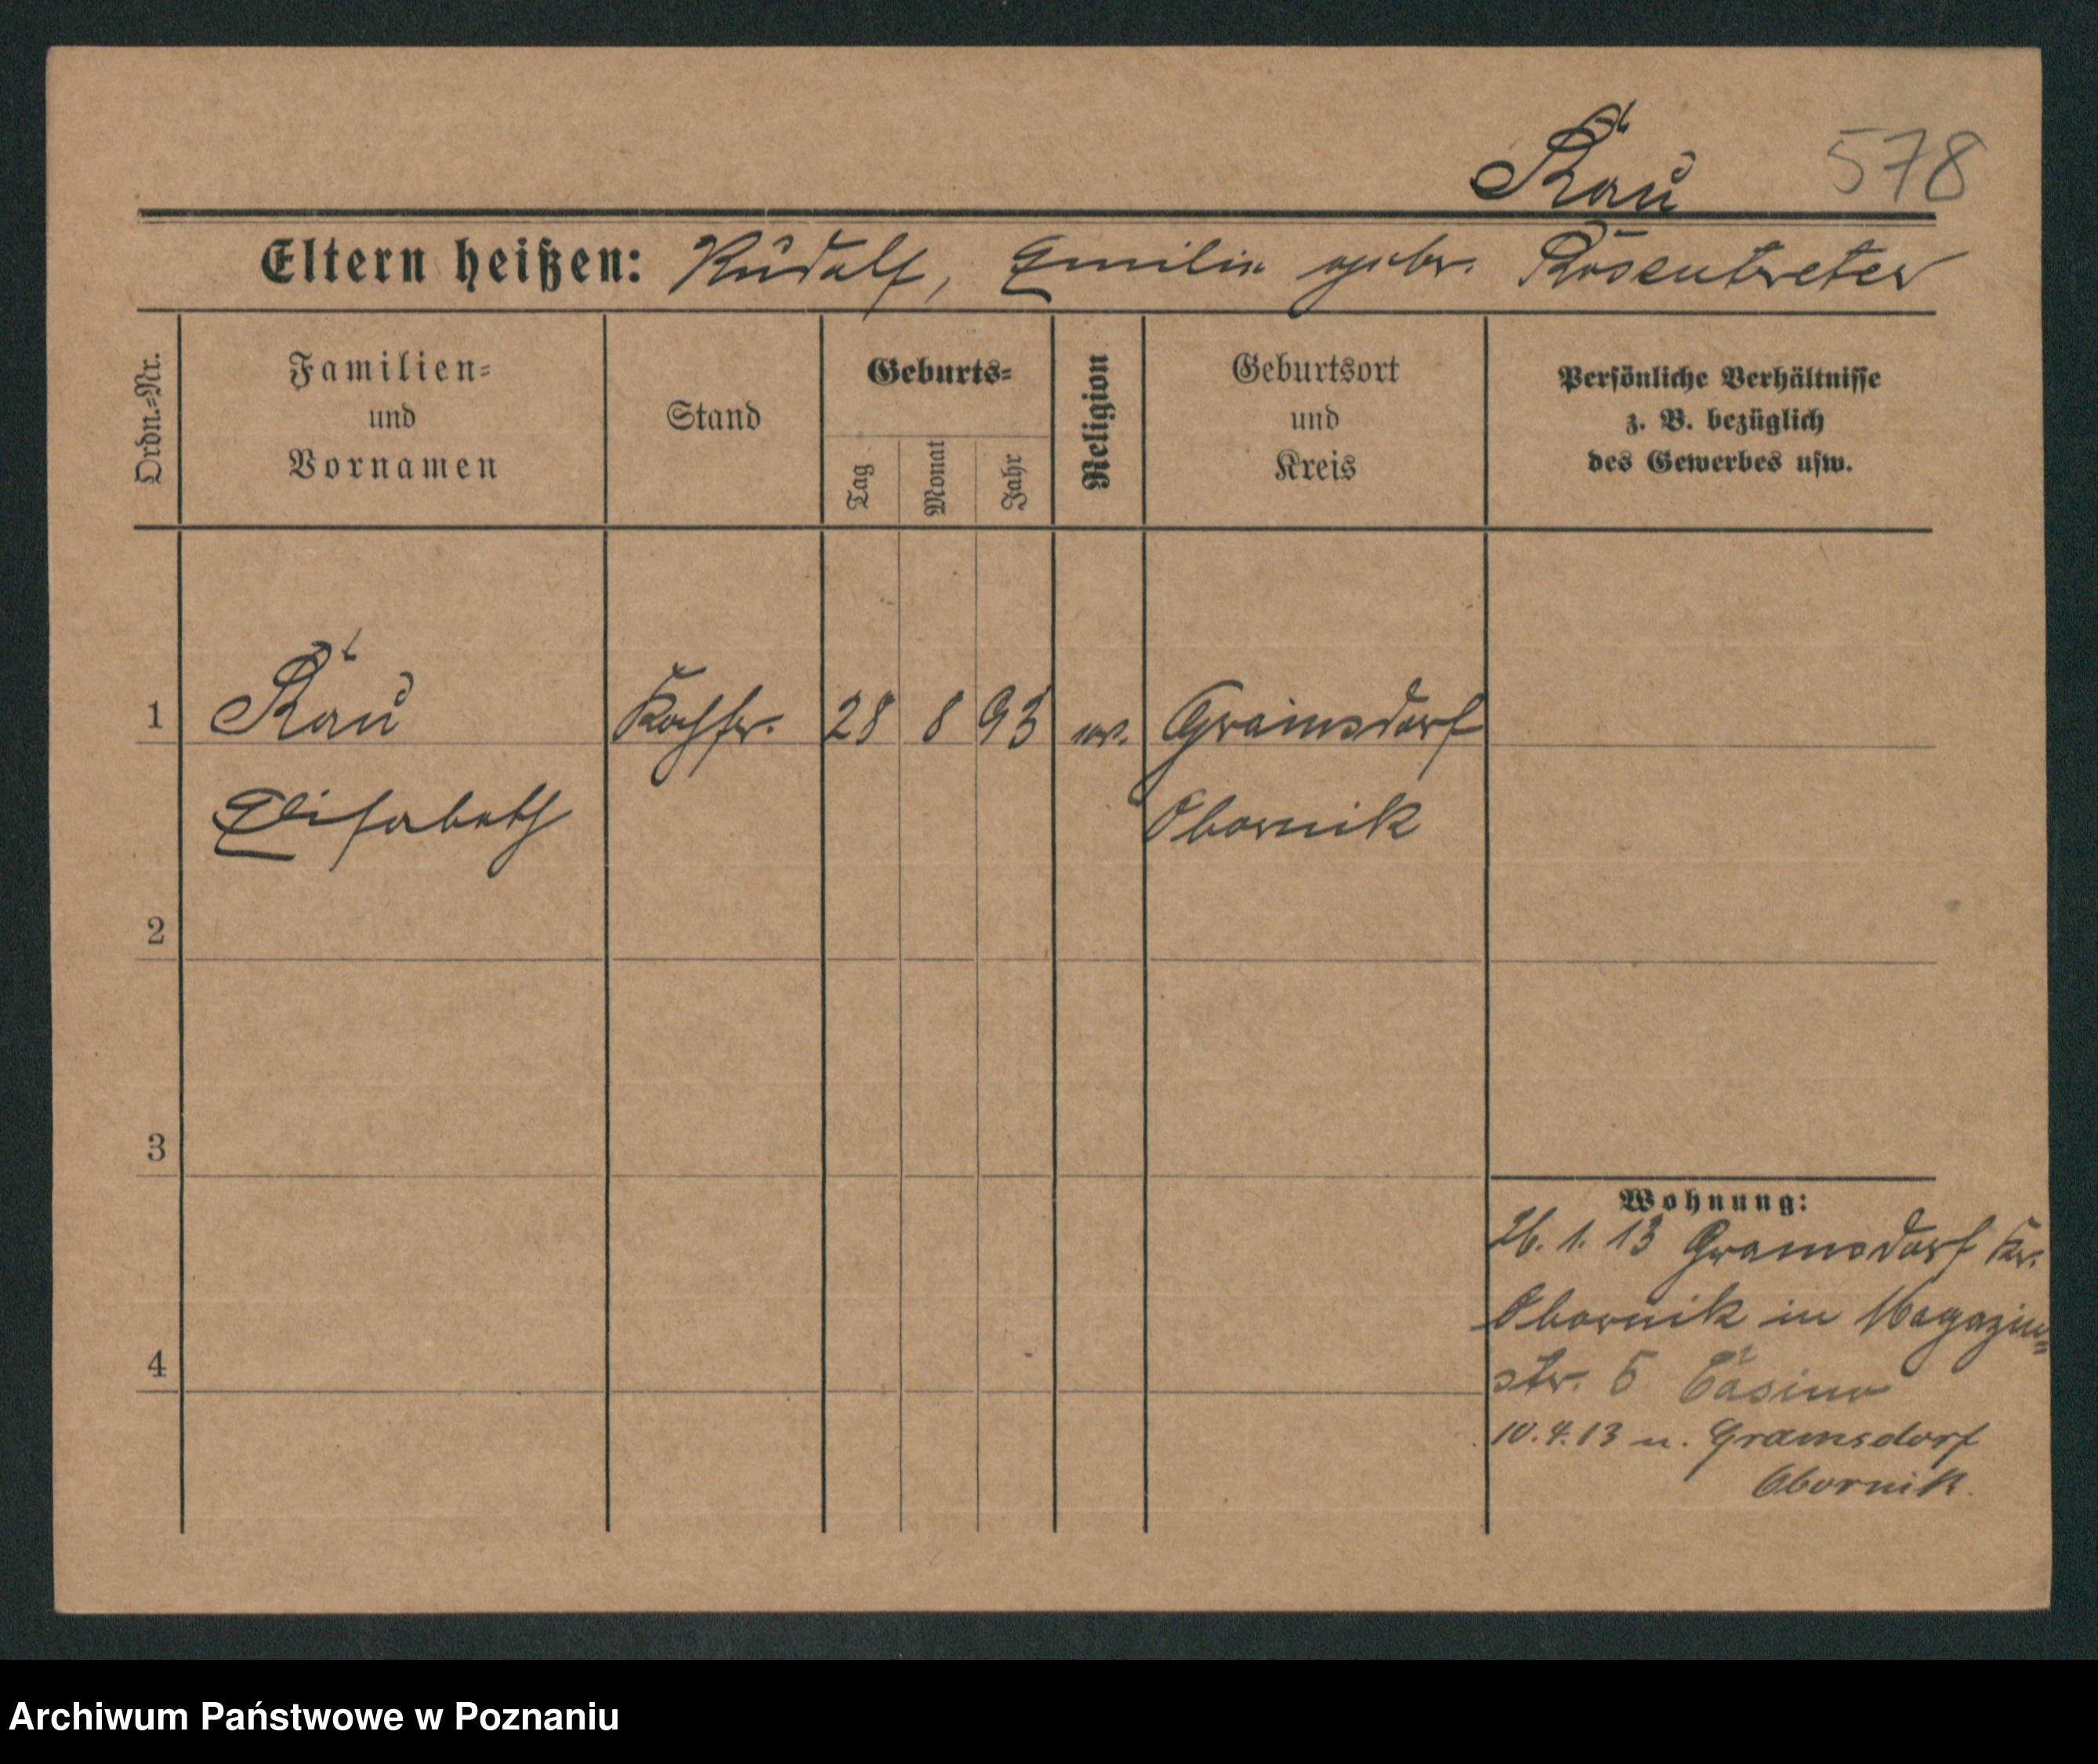 Rau 578
Eltern heißen: Rudolf, Emilie geb. Rosentreter
Ordn.=Nr.
Familien=
und
Vornamen
Stand
Geburts=
Tag
Monat
Jahr
Religion
Geburtsort
und
Kreis
Persönliche Verhältnisse
z. B. bezüglich
des Gewerbes usw.
1 Rau 28 8 93 ev. Gramsdorf
Elisabeth Obornik
2
3
4
Wohnung:
26. 1. 13 Gramsdorf Kr.
Obornik in Magazin=
str. 5 Casino
10.4.13 n. Gramsdorf
Obornik.
Archiwum Państwowe w Poznaniu